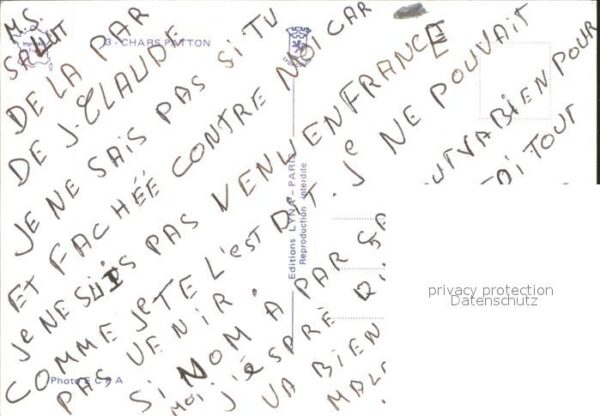 M.S.
SALUT
DE LA PAR
DE J-CLAUDE
JE NE SAIS PAS SI TU
ET FACHÉE CONTRE MOI CAR
JE NE SUIS PAS VENU EN FRANCE
COMME JE TE L'EST DIT. JE NE POUVAIT
PAS VENIR.
SI NON A PAR SA
VA BIEN POUR
MOI J'ÉSPRÈ
DI TOUT
VA BIEN
3 - CHARS PATTON
Editions LYNA - PARIS
Reproduction interdite
Photo E C P A
privacy protection
Datenschutz